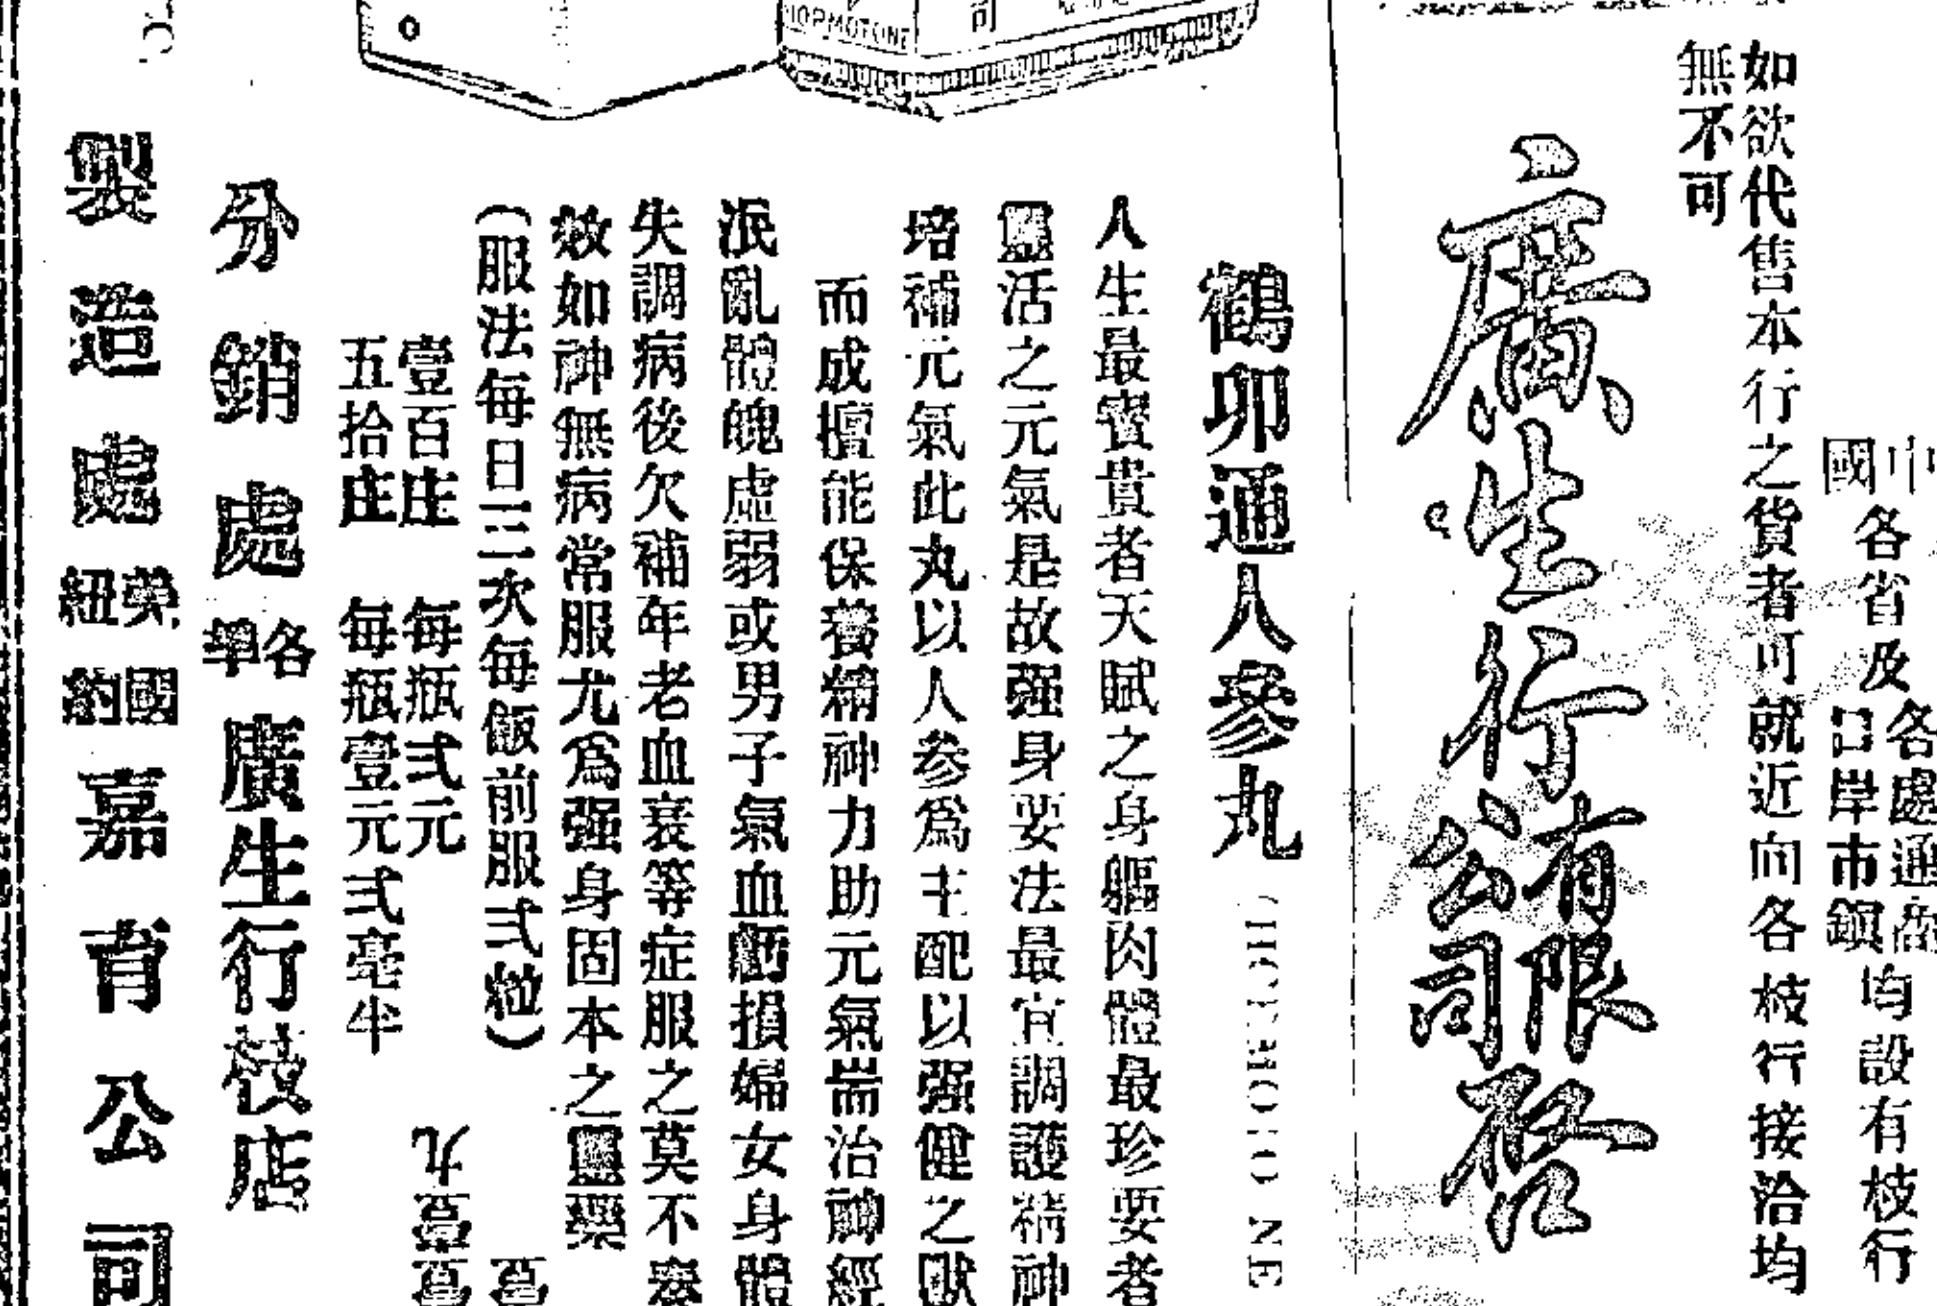 中國各省及各處通商口岸市鎮均設有枝行
如欲代售本行之貨者可就近向各枝行接洽均
無不可
廣生行有限公司啓
鶴卯通人參丸
(HORMOTONE
人生最寳貴者天賦之身軀肉體最珍要者
靈活之元氣是故强身要法最宜調護精神
培補元氣此丸以人参爲主配以强健之獸
而成擅能保養精神力助元氣耑治神經
泯亂體魄虛弱或男子氣血虧損婦女身體
失調病後欠補年老血衰等症服之莫不奏
效如神無病常服尤爲强身固本之靈藥
(服法每日三次每飯前服弍粒)
壹百庄 每瓶弍元
五拾庄 每瓶壹元弍毫半
分銷處各埠廣生行枝店
製造處美國紐約嘉育公司
HORMOTONE
可